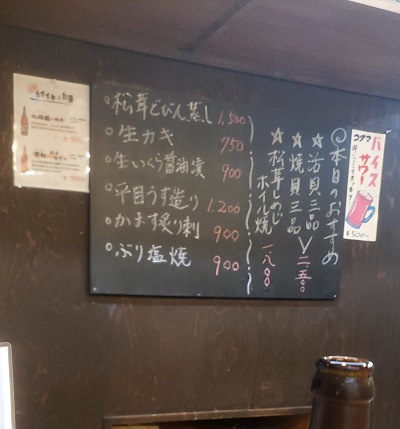 ◎本日のおすすめ
☆活貝三品
☆焼貝三品
二、五〇〇
☆松茸しめじ
ホイル焼
一、八〇〇
○松茸どびん蒸し 1,500
○生カキ 750
○生いくら醤油漬 900
○平目うす造り 1.200
○かます炙り刺 900
○ぶり塩焼 900
おすすめのお酒
コダマ
バイス
サワー
¥500-